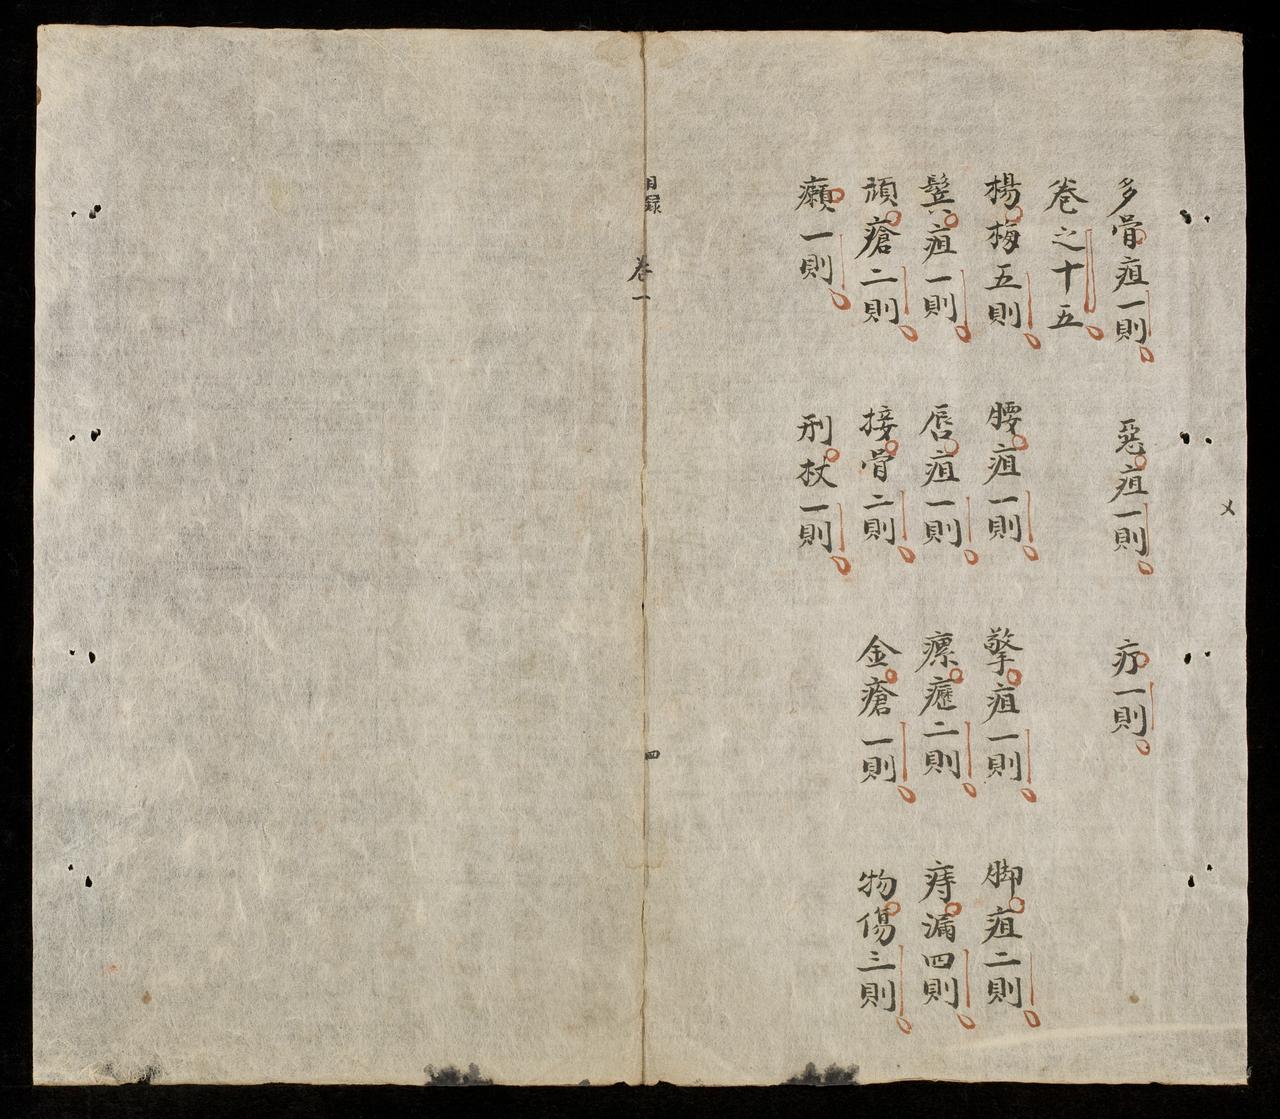 多骨疽一則 惡疽一則 疔一則
卷之十五
楊梅五則 腰疽一則 擎疽一則 脚疽二則
鬢疽一則 唇疽一則 瘰癧二則 痔漏四則
頑瘡二則 接骨二則 金瘡一則 物傷三則
癩一則 刑杖一則
目錄 卷一 四